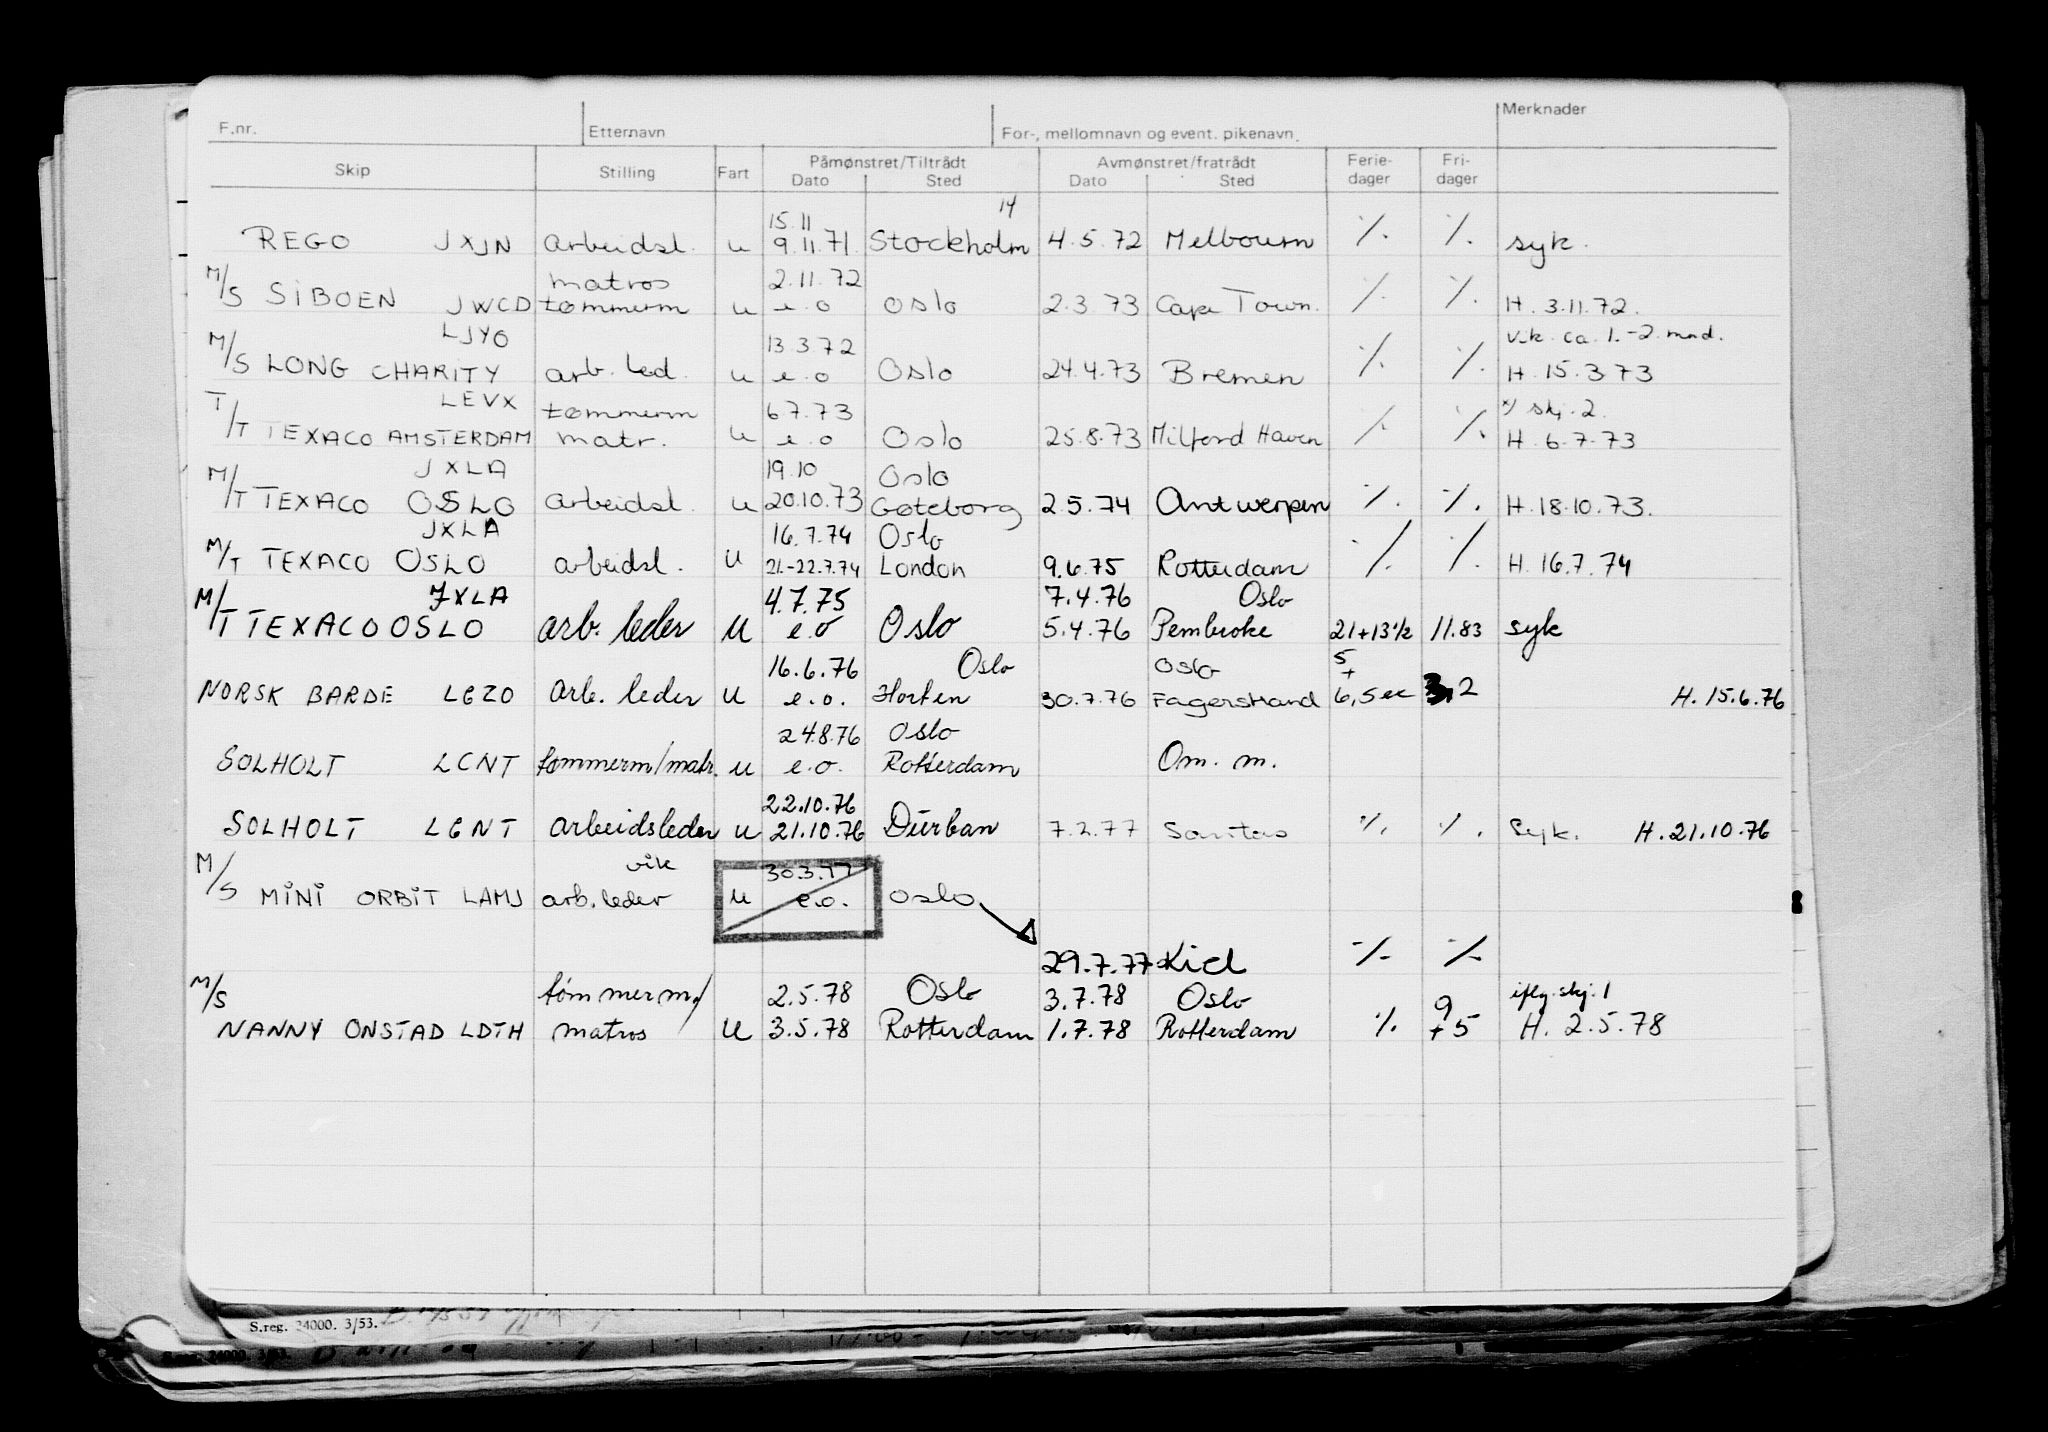 F.nr. Etternavn For-, mellomnavn og event. pikenavn. Merknader
Skip Stilling Fart Påmønstret/Tiltrådt Avmønstret/fratrådt Ferie- Fri-
Dato Sted Dato Sted dager dager
15.11 14
REGO JXJN arbeidsl. u 9.11.71. Stockholm 4.5.72 Melbourn ·/. ·/. syk.
matros 2.11.72
M/S SIBOEN JWCD tømmerm u e.o Oslo 2.3.73 Cape Town. ·/. ·/. H. 3.11.72.
LJYO 13.3.72 vik. ca. 1.-2 mnd.
M/S LONG CHARITY arb. led. u e.o Oslo 24.4.73 Bremen ·/. ·/. H. 15.3 73
LEVX tømmerm 6 7.73 x/ skj. 2.
T/T TEXACO AMSTERDAM matr. u e.o Oslo 25.8.73 Milford Haven ·/. ·/. H. 6.7.73
JXLA 19.10 Oslo
M/T TEXACO OSLO arbeidsl. u 20.10.73 Gøteborg 2.5.74 Antwerpen ·/. ·/. H.18.10.73.
JXLA 16.7.74 Oslo
M/T TEXACO OSLO arbeidsl. u 21.-22.7.74 London 9.6.75 Rotterdam ·/. ·/. H. 16.7.74
JXLA 4.7.75 7.4.76 Oslo
M/T TEXACO OSLO arb. leder u e.o Oslo 5.4.76 Pembroke 21+13 1/2 11.83 syk
16.6.76 Oslo Oslo 5
NORSK BARDE LEZO arb. leder u e.o. Horten 30.7.76 Fagerstrand + 6,5 3,2 H. 15.6.76
24.8.76 Oslo
SOLHOLT LCNT tømmerm/matr. u e.o. Rotterdam Om. m.
22.10.76
SOLHOLT LCNT arbeidsleder u 21.10.76 Durban 7.2.77 Santos ·/. ·/. Syk. H.21.10.76
vik 30.3.77
M/S MINI ORBIT LAMJ arb.leder u e.o. Oslo
29.7.77 Kiel ·/. ·/.
M/S tømmerm./ 2.5.78 Oslo 3.7.78 Oslo 9 iflg. skj. 1
NANNY ONSTAD LDTH matros u 3.5.78 Rotterdam 1.7.78 Rotterdam ·/. +5 H. 2.5.78
S.reg. 24000. 3/53.